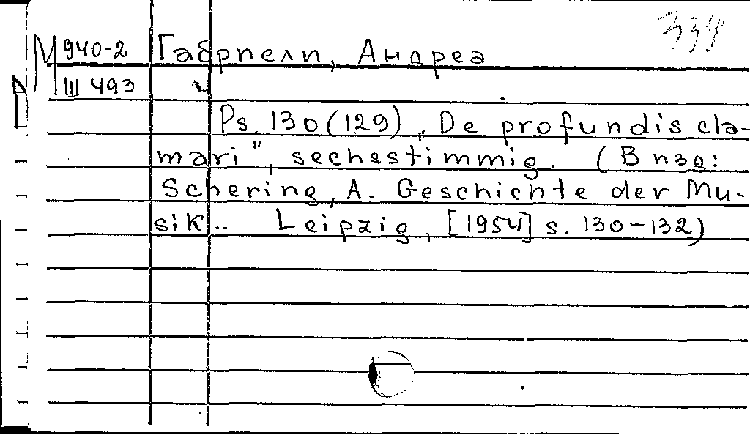 334
М 940-2 Габриели, Андреа
III 493
Ps. 130 (129) „De profundis cla-
mari", sechsstimmig. (В изд:
Schering, A. Geschichte der Mu-
sik.. Leipzig, [1954] s. 130-132)